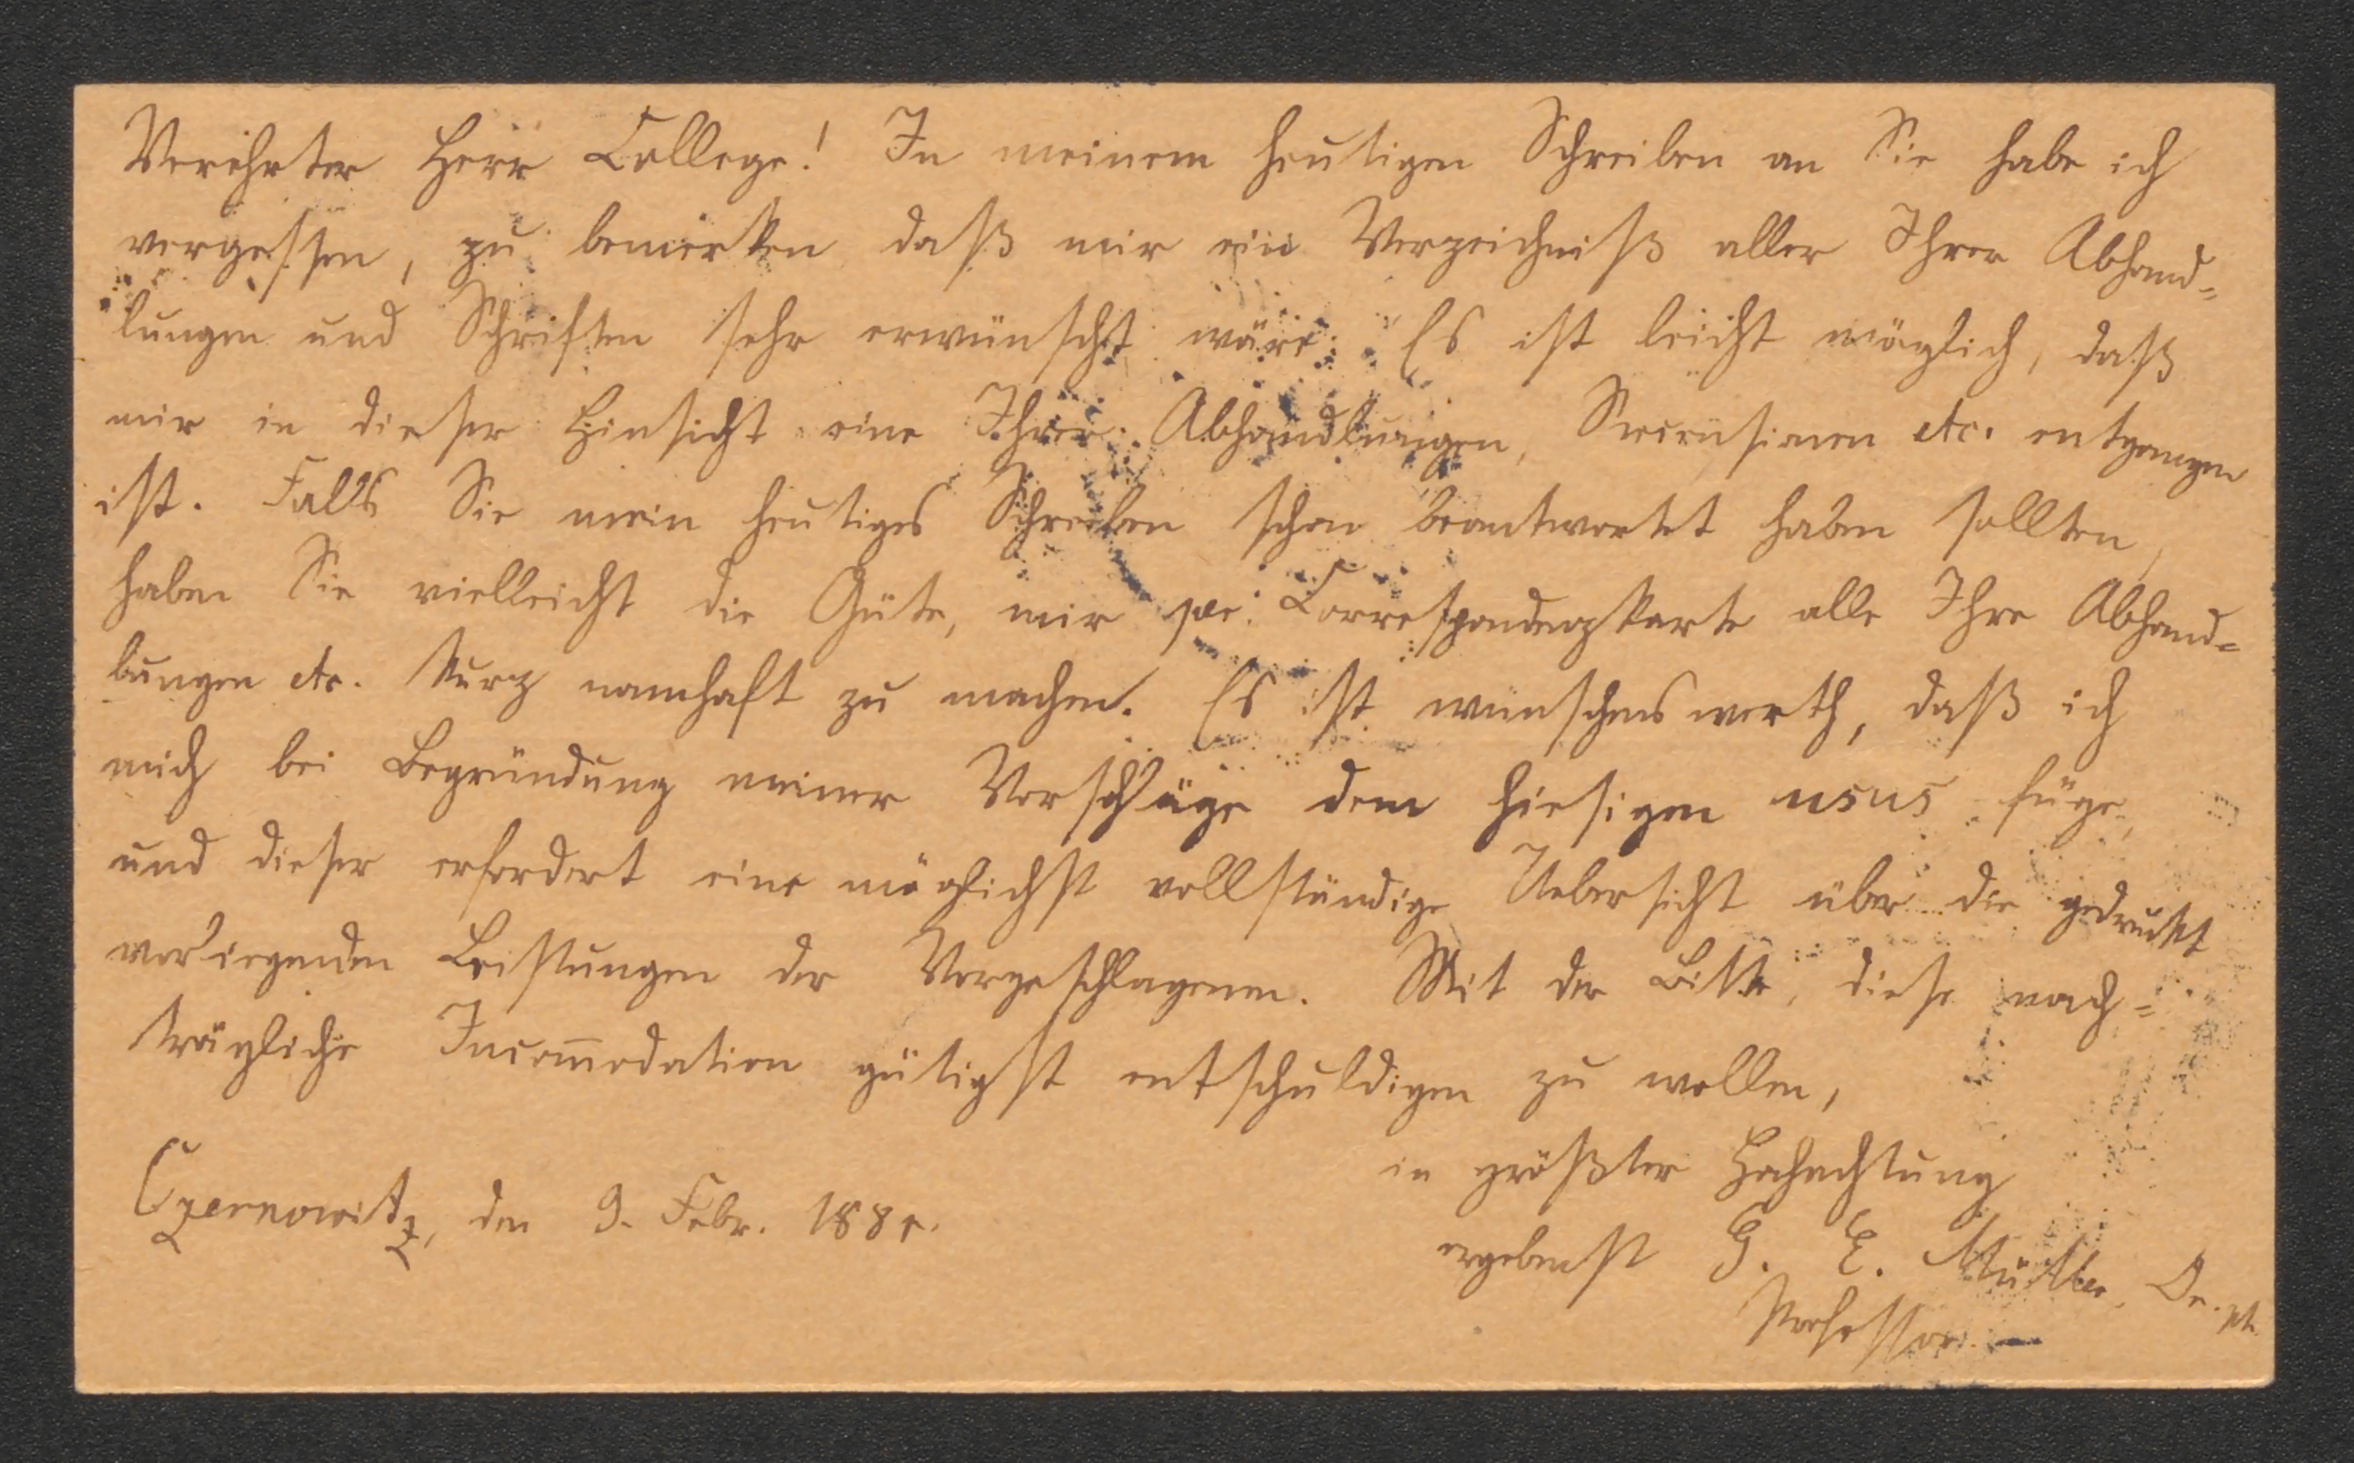 Verehrter Herr College! In meinem heutigen Schreiben an Sie habe ich
vergessen, zu bemerken daß mir ein Verzeichniß aller Ihrer Abhand=
lungen und Schriften sehr erwünscht wäre. Es ist leicht möglich, daß
mir in dieser Hinsicht eine Ihrer Abhandlungen, Recensionen etc. entgangen
ist. Falls Sie mein heutiges Schreiben schon beantwortet haben sollten,
haben Sie vielleicht die Güte, mir per Correspondenzkarte alle Ihre Abhand=
lungen etc. kurz namhaft zu machen. Es ist wünschenswerth, daß ich
mich bei Begründung meiner Vorschläge dem hiesigen usus füge,
und dieser erfordert eine möglichst vollständige Uebersicht über die gedruckt
vorliegenden Leistungen der Vorgeschlagenen. Mit der Bitte, diese nach=
trägliche Incom̄odation gütigst entschuldigen zu wollen,
in größter Hochachtung
Czernowitz, den 9. Febr. 1881.
ergebenst G. E. Müller, Dr.
Professor.